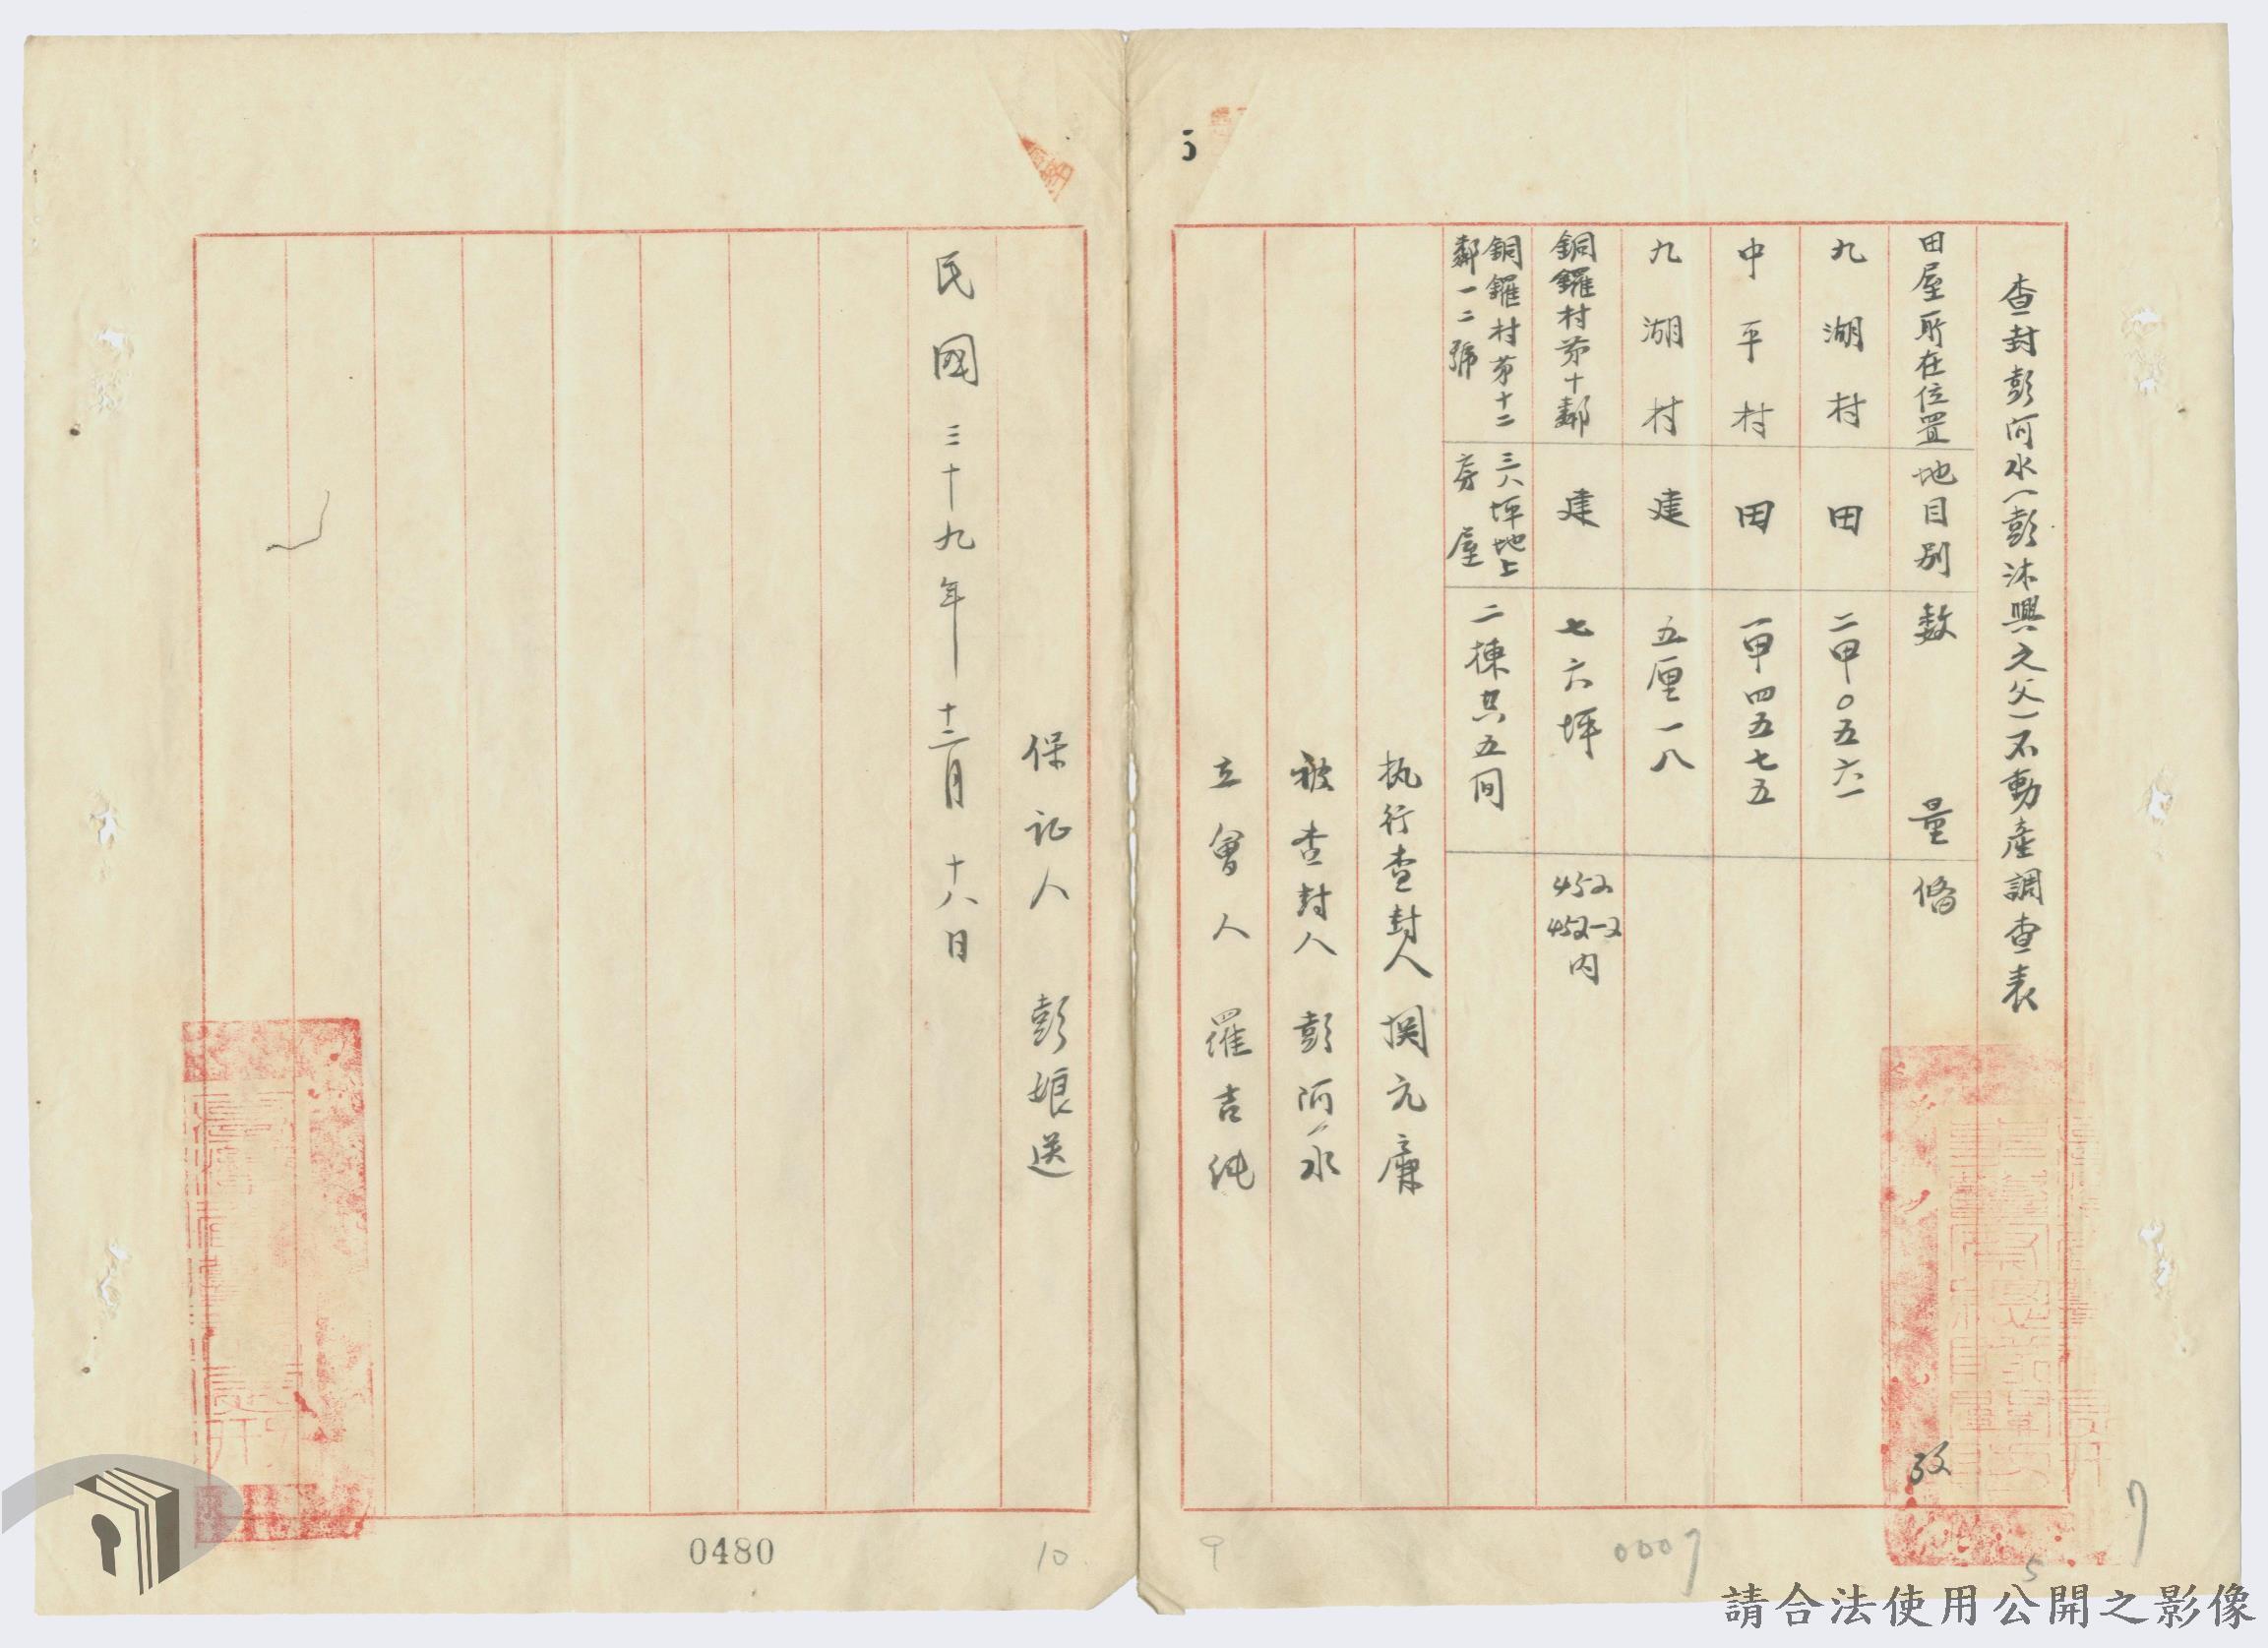 查封彭阿水(彭沐興之父)不動產調查表
田屋所在位置 地目別 數量 備 攷
九湖村 田 二甲〇五六一
中平村 田 一甲四五七五
九湖村 建 五厘一八
銅鑼村第十鄰 建 七六坪 452 452-2 內
銅鑼村第十二鄰一二號 三八坪地上房屋 二棟共五间
执行查封人 関元庸
被查封人 彭阿水
立會人 羅吉純
保证人 彭娘送
民國三十九年十二月十八日
5
0480
10
9
0007
5
7
請合法使用公開之影像